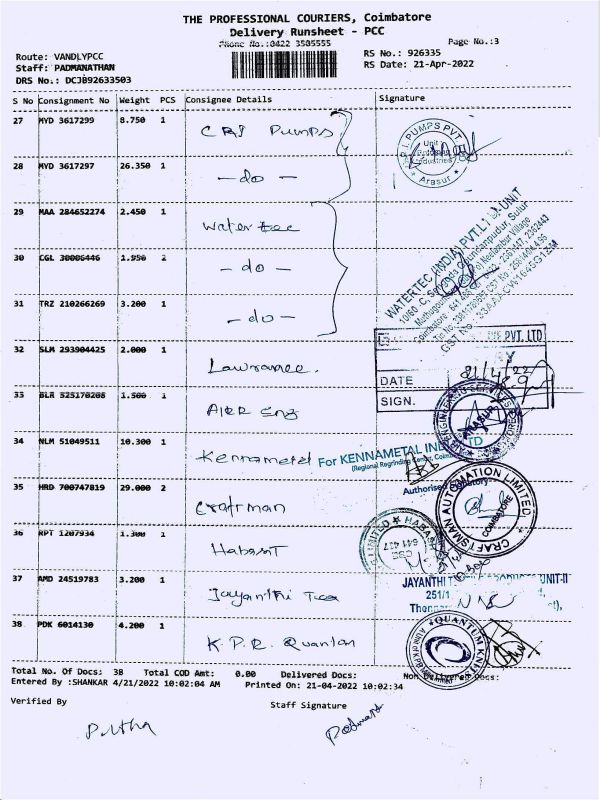 THE PROFESSIONAL COURIERS, Coimbatore
Delivery Runsheet - PCC
Phone No.:0422 3505555
Page No.:3
Route: VANDLYPCC
RS No.: 926335
Staff: PADMANATHAN
RS Date: 21-Apr-2022
DRS No.: DCJB92633503
S No Consignment No Weight PCS Consignee Details Signature
27 MYD 3617299 8.750 1 CRI Pumps
28 MYD 3617297 26.350 1 - do -
29 MAA 284652274 2.450 1 Water tec
30 CGL 30006446 1.950 2 - do -
31 TRZ 210266269 3.200 1 - do -
32 SLM 293904425 2.000 1
33 BLR 525170208 1.500 1
34 NLM 51049511 10.300 1 Kennametal
35 HRD 700747819 29.000 2 Craftman
36 RPT 1207934 1.300 1 Habasit
37 AMD 24519783 3.200 1 Jayanthi
38 PDK 6014130 4.200 1 K.P.R. Quantan
PUMPS PVT
Unit
Industries
Arasur
WATERTEC (INDIA) PVT.LTD.
PVT. LTD
DATE 21/4/22
SIGN.
ARASUR
For KENNAMETAL IND
LTD
(Regional Regrinding
Authorised
CRAFTSMAN AUTOMATION LIMITED
COIMBATORE
641 427
JAYANTHI
UNIT-II
251/1
QUANTUM KNITS
Total No. Of Docs: 38 Total COD Amt: 0.00 Delivered Docs: Non Delivered Docs:
Entered By :SHANKAR 4/21/2022 10:02:04 AM Printed On: 21-04-2022 10:02:34
Verified By
Staff Signature